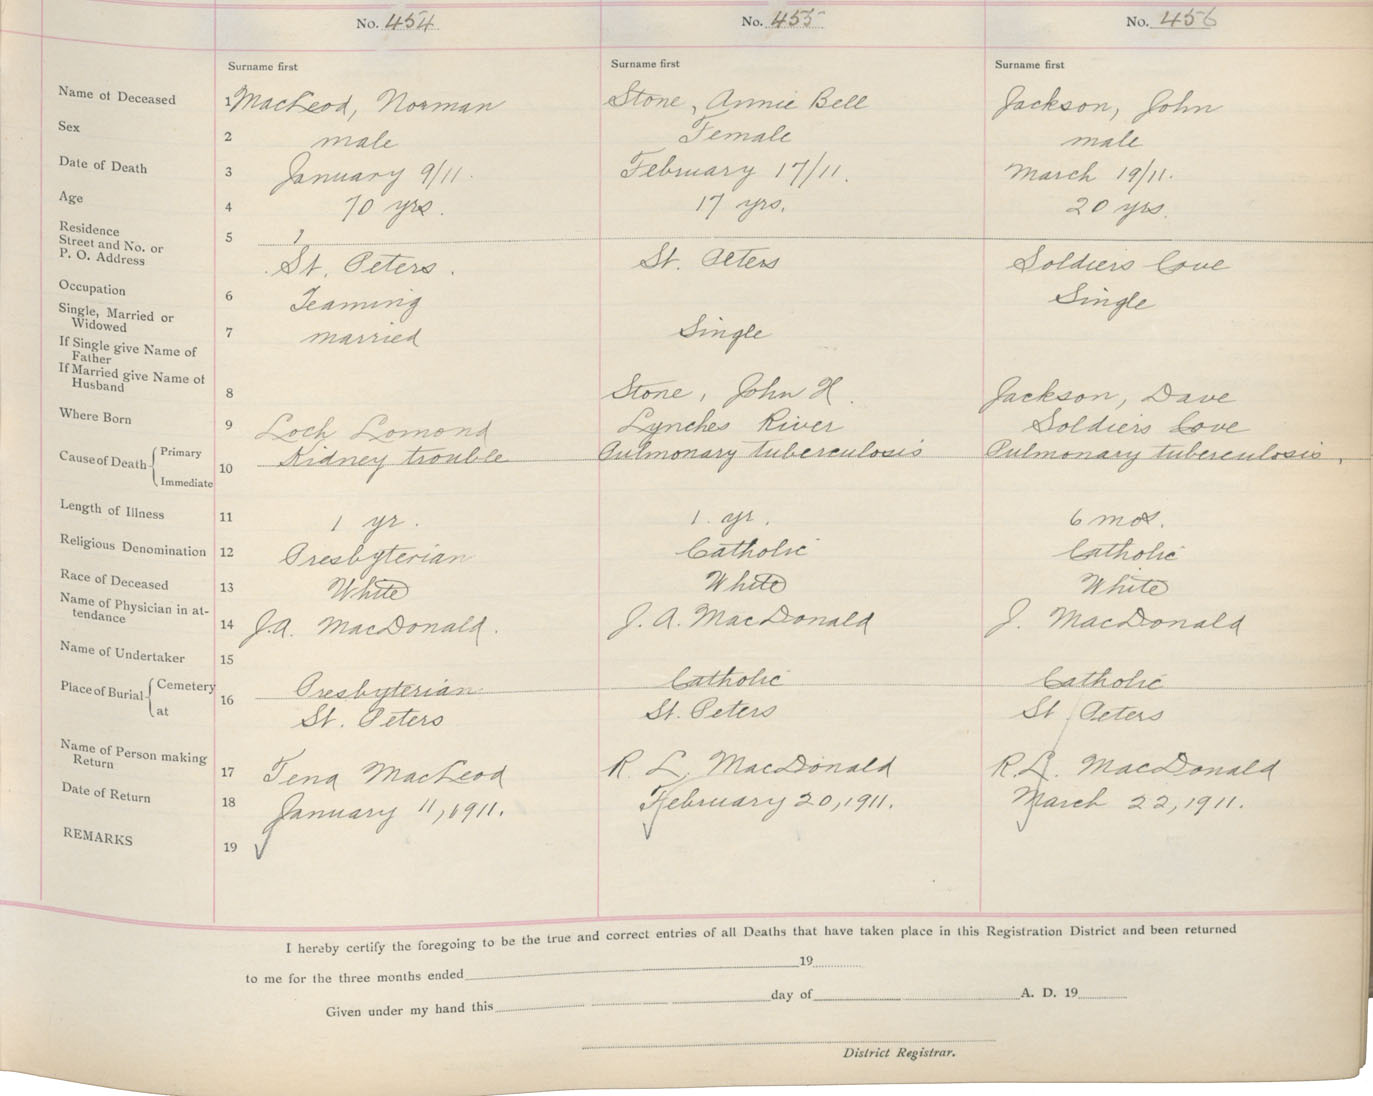 No. 454 No. 455 No. 456
Surname first Surname first Surname first
Name of Deceased 1 MacLeod, Norman Stone, Annie Bell Jackson, John
Sex 2 male Female male
Date of Death 3 January 9/11. February 17/11. March 19/11.
Age 4 70 yrs. 17 yrs. 20 yrs.
Residence
Street and No. or
P. O. Address 5 St. Peters. St. Peters Soldiers Cove
Occupation 6 Teaming Single
Single, Married or
Widowed 7 married Single
If Single give Name of
Father
If Married give Name of
Husband 8 Stone, John H. Jackson, Dave
Where Born 9 Loch Lomond Lynches River Soldiers Cove
Cause of Death Primary Kidney trouble Pulmonary tuberculosis Pulmonary tuberculosis,
10 Immediate
Length of Illness 11 1 yr. 1. yr. 6 mos.
Religious Denomination 12 Presbyterian Catholic Catholic
Race of Deceased 13 White White White
Name of Physician in at-
tendance 14 J.A. MacDonald. J. A. MacDonald J. MacDonald
Name of Undertaker 15
Place of Burial Cemetery 16 Presbyterian Catholic Catholic
at St. Peters St. Peters St. Peters
Name of Person making
Return 17 Tena MacLeod R. L. MacDonald R.L. MacDonald
Date of Return 18 January 11, 1911. February 20, 1911. March 22, 1911.
REMARKS 19
I hereby certify the foregoing to be the true and correct entries of all Deaths that have taken place in this Registration District and been returned
to me for the three months ended 19
Given under my hand this day of A. D. 19
District Registrar.